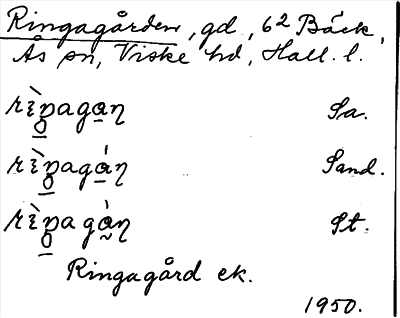 Ringagården, gd, 6² Bäck,
Ås sn, Viske hd, Hall. l.
Sa.
Sand.
St.
Ringagård ek.
1950.